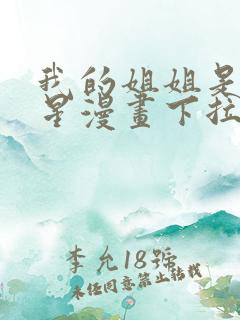 我的姐姐是
星漫畫下拉
李允18號
未经同意禁止转载